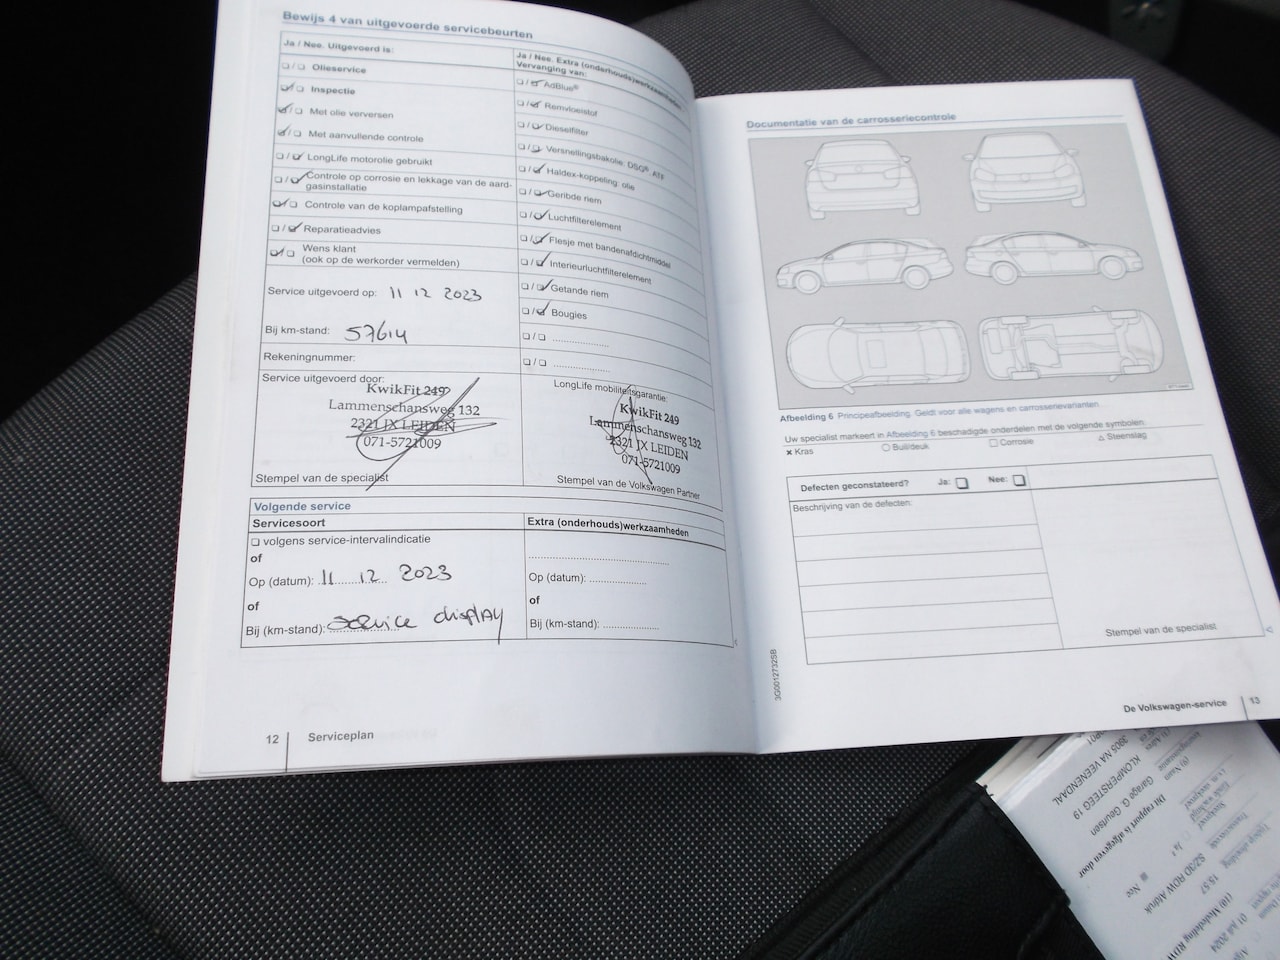 Bewijs 4 van uitgevoerde servicebeurten
Ja / Nee. Uitgevoerd is:
Olieservice
Inspectie
Met olie verversen
Met aanvullende controle
LongLife motorolie gebruikt
Controle op corrosie en lekkage van de aard-
gasinstallatie
Controle van de koplampafstelling
Reparatieadvies
Wens klant
(ook op de werkorder vermelden)
Service uitgevoerd op: 11 12 2023
Bij km-stand: 57614
Rekeningnummer:
Service uitgevoerd door:
KwikFit 249
Lammenschansweg 132
2321 JX LEIDEN
071-5721009
Stempel van de specialist
Ja / Nee. Extra (onderhouds)werkzaamheden
Vervanging van:
AdBlue®
Remvloeistof
Dieselfilter
Versnellingsbakolie: DSG®, ATF
Haldex-koppeling: olie
Geribde riem
Luchtfilterelement
Flesje met bandenafdichtmiddel
Interieurluchtfilterelement
Getande riem
Bougies
LongLife mobiliteitsgarantie:
KwikFit 249
Lammenschansweg 132
2321 JX LEIDEN
071-5721009
Stempel van de Volkswagen Partner
Volgende service
Servicesoort
volgens service-intervalindicatie
of
Op (datum): 11 12 2023
of
Bij (km-stand): service display
Extra (onderhouds)werkzaamheden
Op (datum):
of
Bij (km-stand):
12 Serviceplan
Documentatie van de carrosseriecontrole
Afbeelding 6 Principeafbeelding. Geldt voor alle wagens en carrosserievarianten.
Uw specialist markeert in Afbeelding 6 beschadigde onderdelen met de volgende symbolen:
Kras Buil/deuk Corrosie Steenslag
Defecten geconstateerd? Ja: Nee:
Beschrijving van de defecten:
Stempel van de specialist
3G0012732SB
De Volkswagen-service 13
3905 NA VEENENDAAL
KLOMPERSTEEG 19
Garage G. Geurtsen
Dit rapport is afgegeven door
Ja
Nee
SZ/3D RDW Afdruk
15:57
01 juli 2024